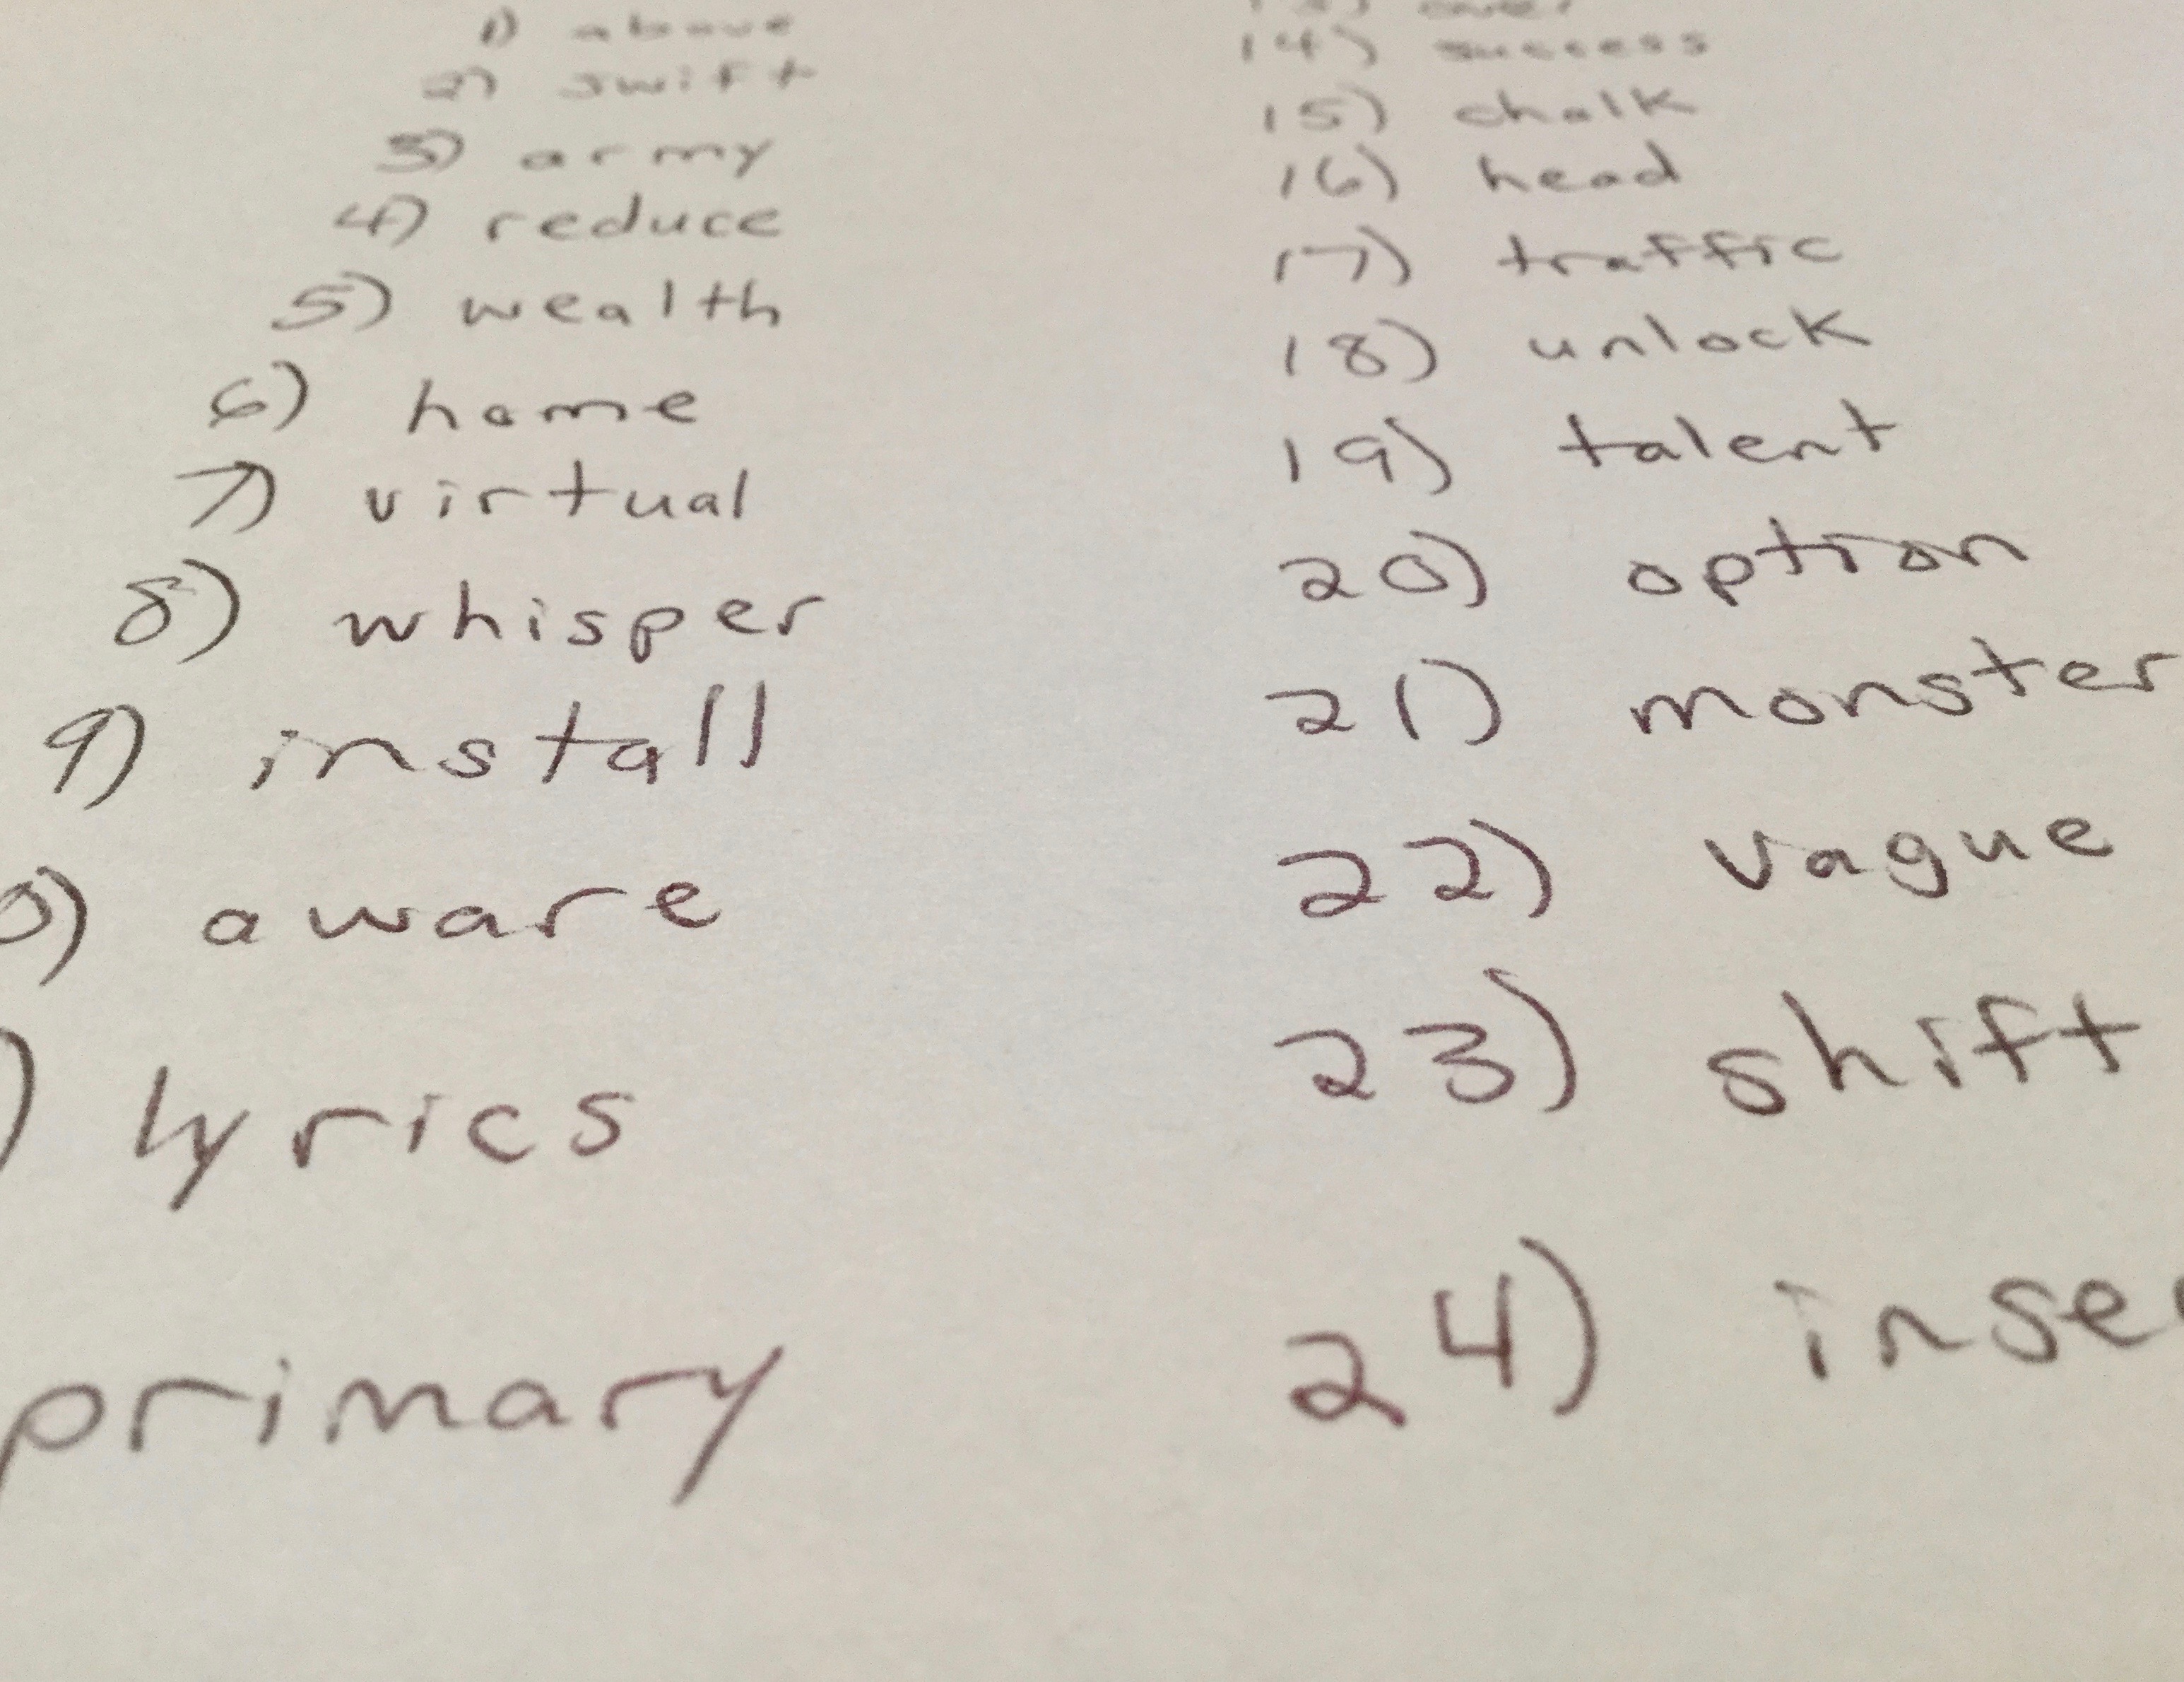 1) above
2) swift
3) army
4) reduce
5) wealth
6) home
7) virtual
8) whisper
9) install
0) aware
) lyrics
primary
14) success
15) chalk
16) head
17) traffic
18) unlock
19) talent
20) option
21) monster
22) vague
23) shift
24)